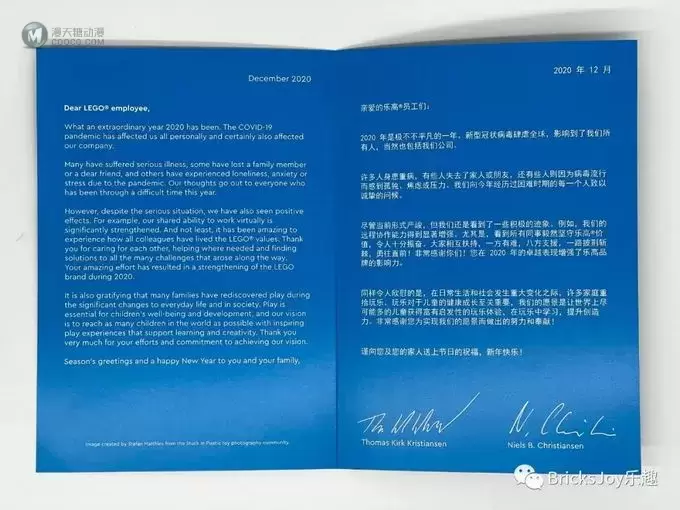 漫天糖动漫
COOCO.COM
December 2020
Dear LEGO® employee,
What an extraordinary year 2020 has been. The COVID-19
pandemic has affected us all personally and certainly also affected
our company.
Many have suffered serious illness; some have lost a family member
or a dear friend, and others have experienced loneliness, anxiety or
stress due to the pandemic. Our thoughts go out to everyone who
has been through a difficult time this year.
However, despite the serious situation, we have also seen positive
effects. For example, our shared ability to work virtually is
significantly strengthened. And not least, it has been amazing to
experience how all colleagues have lived the LEGO® values. Thank
you for caring for each other, helping where needed and finding
solutions to all the many challenges that arose along the way.
Your amazing effort has resulted in a strengthening of the LEGO
brand during 2020.
It is also gratifying that many families have rediscovered play during
the significant changes to everyday life and in society. Play is
essential for children's well-being and development, and our vision
is to reach as many children in the world as possible with inspiring
play experiences that support learning and creativity. Thank you
very much for your efforts and commitment to achieving our vision.
Season's greetings and a happy New Year to you and your family,
Image created by Stefan Matthies from the Stuck in Plastic toy photography community.
2020 年 12 月
亲爱的乐高®员工们：
2020 年是极不不平凡的一年。新型冠状病毒肆虐全球，影响到了我们所
有人，当然也包括我们公司。
许多人身患重病，有些人失去了家人或朋友，还有些人则因为病毒流行
而感到孤独、焦虑或压力。我们向今年经历过困难时期的每一个人致以
诚挚的问候。
尽管当前形式严峻，但我们还是看到了一些积极的迹象。例如，我们的
远程协作能力得到显著增强。尤其是，看到所有同事毅然坚守乐高®价
值，令人十分振奋。大家相互扶持，一方有难，八方支援，一路披荆斩
棘，勇往直前！非常感谢你们！您在 2020 年的卓越表现增强了乐高品
牌的影响力。
同样令人欣慰的是，在日常生活和社会发生重大变化之际，许多家庭重
拾玩乐。玩乐对于儿童的健康成长至关重要，我们的愿景是让世界上尽
可能多的儿童获得富有启发性的玩乐体验，在玩乐中学习，提升创造
力。非常感谢您为实现我们的愿景而做出的努力和奉献！
谨向您及您的家人送上节日的祝福，新年快乐！
Thomas Kirk Kristiansen
Niels B. Christiansen
BricksJoy乐趣